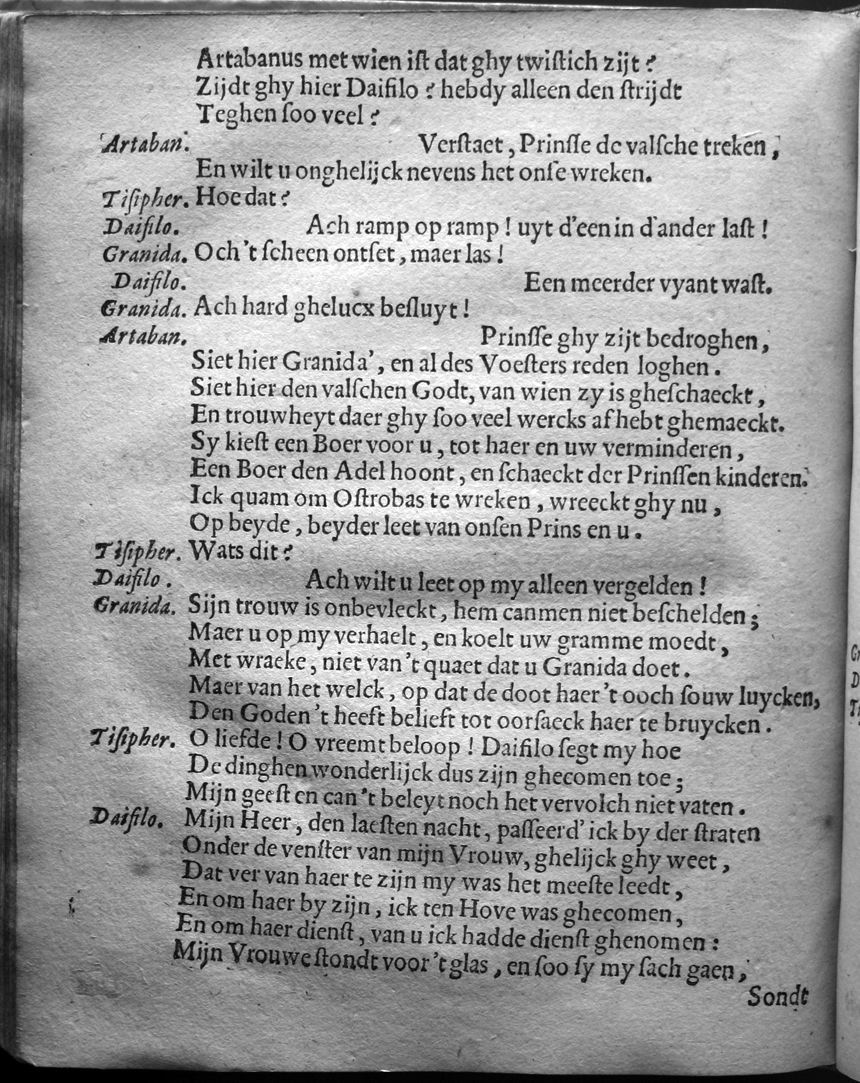 Artabanus met wien iſt dat ghy twiſtich zijt?
Zijdt ghy hier Daifilo? hebdy alleen den ſtrijdt
Teghen ſoo veel?
Artaban. Verſtaet, Prinſſe de valſche treken,
En wilt u onghelijck nevens het onſe wreken.
Tiſipher. Hoe dat?
Daifilo. Ach ramp op ramp! uyt d'een in d'ander laſt!
Granida. Och 't ſcheen ontſet, maer las!
Daifilo. Een meerder vyant waſt.
Granida. Ach hard ghelucx beſluyt!
Artaban. Prinſſe ghy zijt bedroghen,
Siet hier Granida', en al des Voeſters reden loghen.
Siet hier den valſchen Godt, van wien zy is gheſchaeckt,
En trouwheyt daer ghy ſoo veel wercks af hebt ghemaeckt.
Sy kieſt een Boer voor u, tot haer en uw verminderen,
Een Boer den Adel hoont, en ſchaeckt der Prinſſen kinderen.
Ick quam om Oſtrobas te wreken, wreeckt ghy nu,
Op beyde, beyder leet van onſen Prins en u.
Tiſipher. Wats dit?
Daifilo. Ach wilt u leet op my alleen vergelden!
Granida. Sijn trouw is onbevleckt, hem canmen niet beſchelden;
Maer u op my verhaelt, en koelt uw gramme moedt,
Met wraeke, niet van 't quaet dat u Granida doet.
Maer van het welck, op dat de doot haer 't ooch ſouw luycken,
Den Goden 't heeft belieft tot oorſaeck haer te bruycken.
Tiſipher. O liefde! O vreemt beloop! Daifilo ſegt my hoe
De dinghen wonderlijck dus zijn ghecomen toe;
Mijn geeſt en can 't beleyt noch het vervolch niet vaten.
Daifilo. Mijn Heer, den laeſten nacht, paſſeerd' ick by der ſtraten
Onder de venſter van mijn Vrouw, ghelijck ghy weet,
Dat ver van haer te zijn my was het meeſte leedt,
En om haer by zijn, ick ten Hove was ghecomen,
En om haer dienſt, van u ick hadde dienſt ghenomen:
Mijn Vrouwe ſtondt voor 't glas, en ſoo ſy my ſach gaen,
Sondt